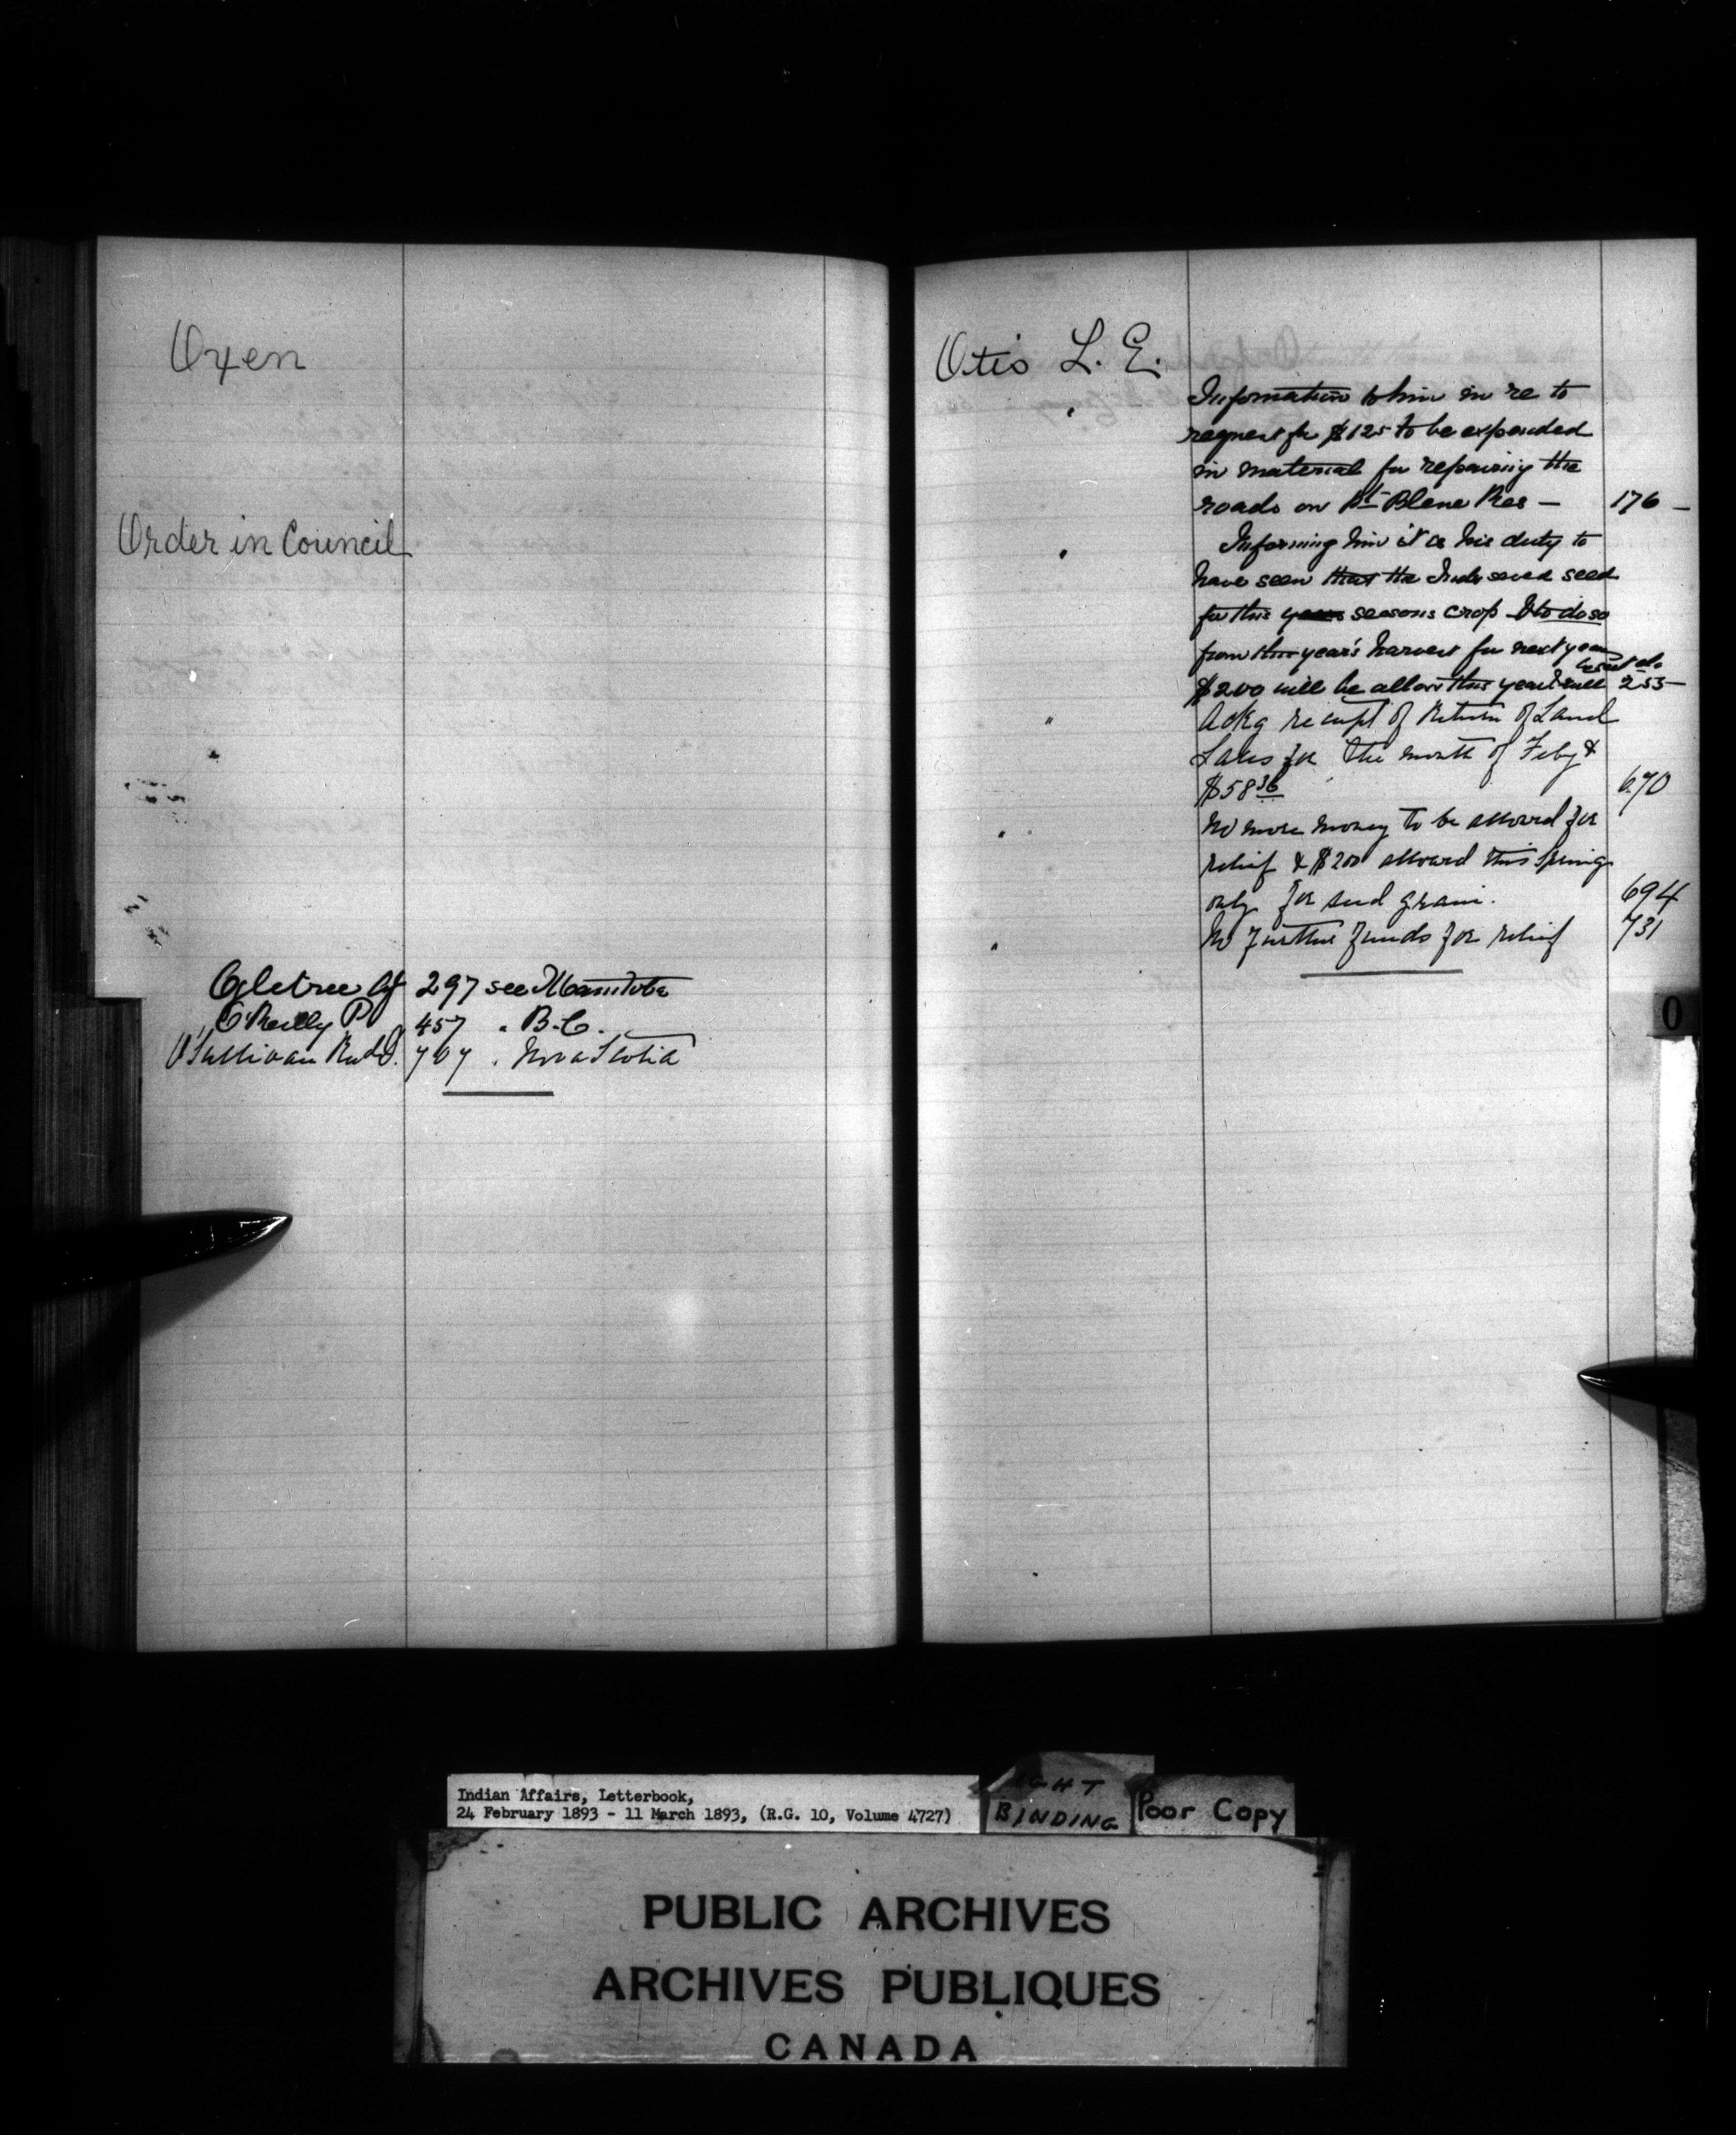 Oxen
Order in Council
Ogletree Af 297 see Manitoba
O'Reilly P 457 . B.C.
O'Sullivan Revd 707 . Nova Scotia
Otis L. E.
" Information to him in re to
request for $125 to be expended
in material for repairing the
roads on Pt Bleue Res — 176 —
" Informing him it is his duty to
have seen that the Inds saved seed
for this years seasons crop & to do so
from this year's harvest for next year
$200 will be allow this year & 253 —
" Ackg receipt of Return of Land
Sales for the month of Feby &
$58 36 670
" No more money to be allowed for
relief & $200 allowed this Spring
only for seed grain. 694
" No further funds for relief 731
O
Indian Affairs, Letterbook,
24 February 1893 - 11 March 1893, (R.G. 10, Volume 4727)
BINDING
Poor Copy
PUBLIC ARCHIVES
ARCHIVES PUBLIQUES
CANADA